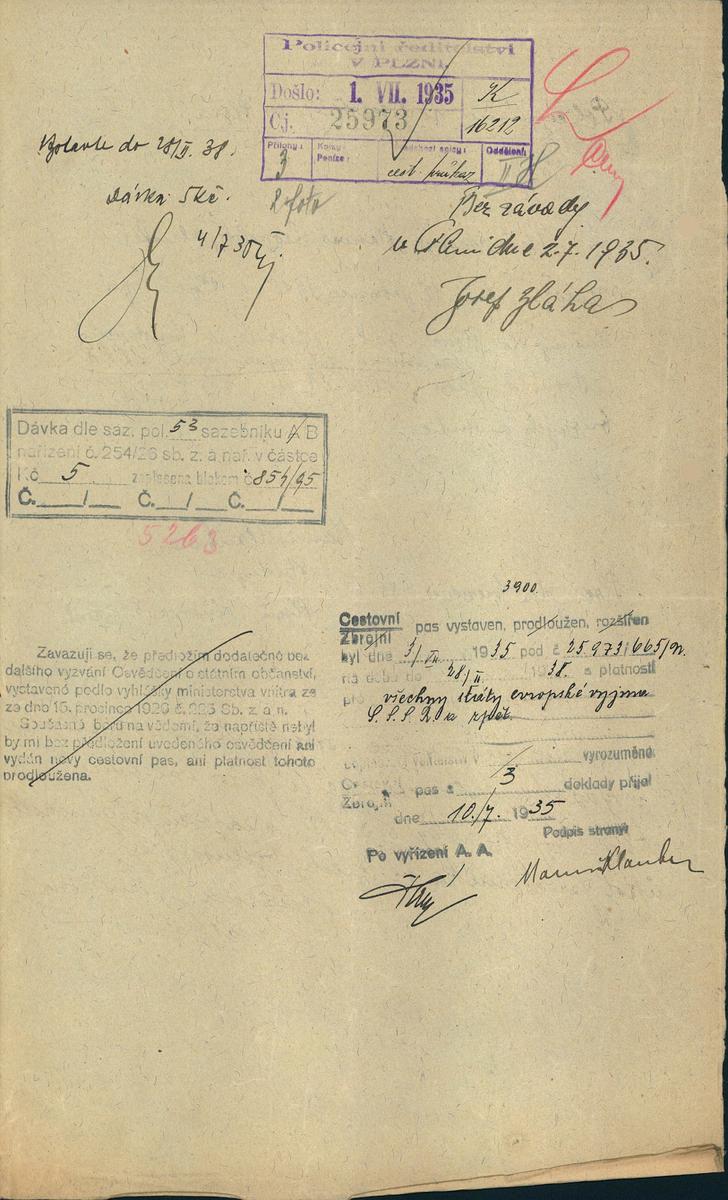 Policejní ředitelství
V PLZNI.
Došlo: 1. VII. 1935 K
Čj. 25973 16212
Přílohy: Kolky: Předchozí spisy: Oddělení:
Peníze:
3 cest. průkaz II
2 foto
do 28/II. 38.
dávka 5 Kč.
4/7 35
Bez závady
v Plzni dne 2.7. 1935.
Josef Bláha
Dávka dle saz. pol. 53 sazebníku A B
nařízení č. 254/26 sb. z. a nař. v částce
Kč 5 zaplacena blokem č 854/95
Č. / Č. / Č. /
5263
Zavazuji se, že předložím dodatečně bez
dalšího vyzvání Osvědčení o státním občanství,
vystavené podle vyhlášky ministerstva vnitra ze
ze dne 15. prosince 1926 č. 225 Sb. z. a n.
Současně beru na vědomí, že napříště nebyl
by mi bez předložení uvedeného osvědčení ani
vydán nový cestovní pas, ani platnost tohoto
prodloužena.
3900
Cestovní pas vystaven, prodloužen, rozšířen
Zbrojní
byl dne 3/VII. 1935 pod č 25.973/665/
na dobu do 28/II. 1938. s platností
pro všechny státy evropské vyjma
S.S.S.R. a zpět.
vyrozuměno.
Cestovní pas a 3 doklady přijal
Zbrojní
dne 10./7. 1935
Podpis strany:
Po vyřízení A. A.
Klauber